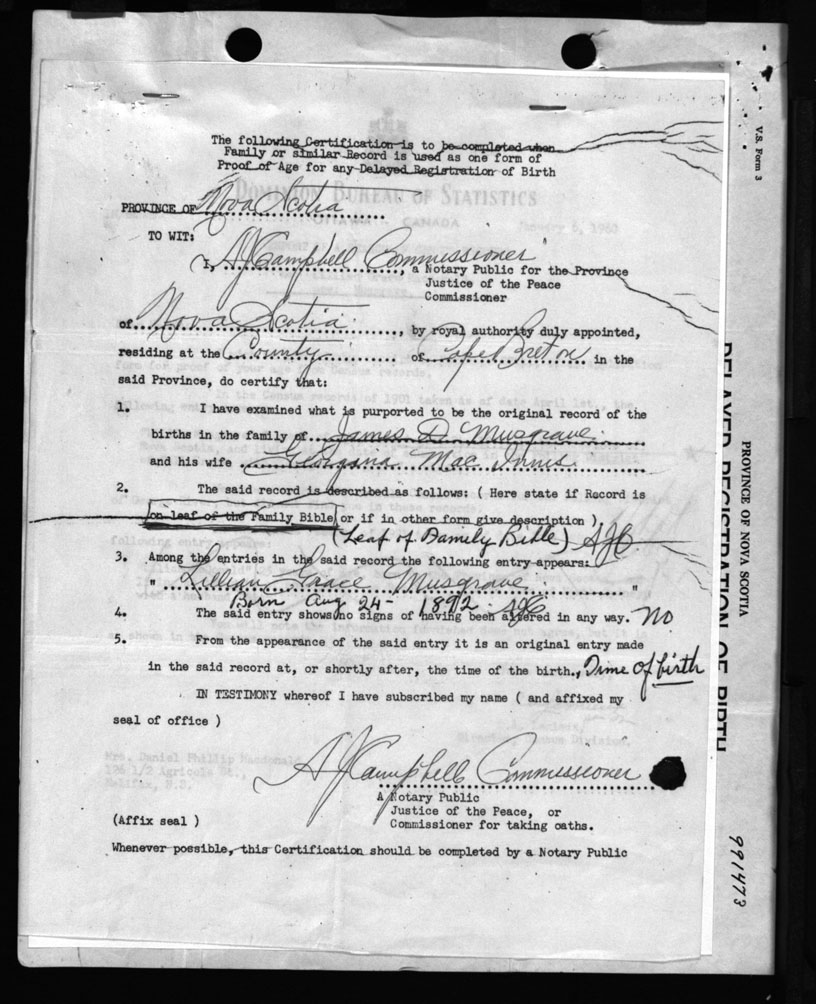 The following Certification is to be completed when
Family or similar Record is used as one form of
Proof of Age for any Delayed Registration of Birth
DOMINION BUREAU OF STATISTICS
OTTAWA - CANADA
PROVINCE OF Nova Scotia
TO WIT:
I, A J Campbell Commissioner, a Notary Public for the Province
Justice of the Peace
Commissioner
of Nova Scotia, by royal authority duly appointed,
residing at the County of Cape Breton in the
said Province, do certify that:
1. I have examined what is purported to be the original record of the
births in the family of James D Musgrave
and his wife Georgina Mac Innis
2. The said record is described as follows: ( Here state if Record is
on leaf of the Family Bible or if in other form give description )
(Leaf of Family Bible) AJC
3. Among the entries in the said record the following entry appears:
" Lillian Grace Musgrave "
Born Aug 24- 1892 AJC
4. The said entry shows no signs of having been altered in any way. No
5. From the appearance of the said entry it is an original entry made
in the said record at, or shortly after, the time of the birth., Time of birth
IN TESTIMONY whereof I have subscribed my name ( and affixed my
seal of office )
Mrs. Daniel Phillip Macdonald
126 1/2 Agricola St.,
Halifax, N.S.
A J Campbell Commissioner
A Notary Public
Justice of the Peace, or
Commissioner for taking oaths.
(Affix seal )
Whenever possible, this Certification should be completed by a Notary Public
V.S. Form 3
PROVINCE OF NOVA SCOTIA
DELAYED REGISTRATION OF BIRTH
991473